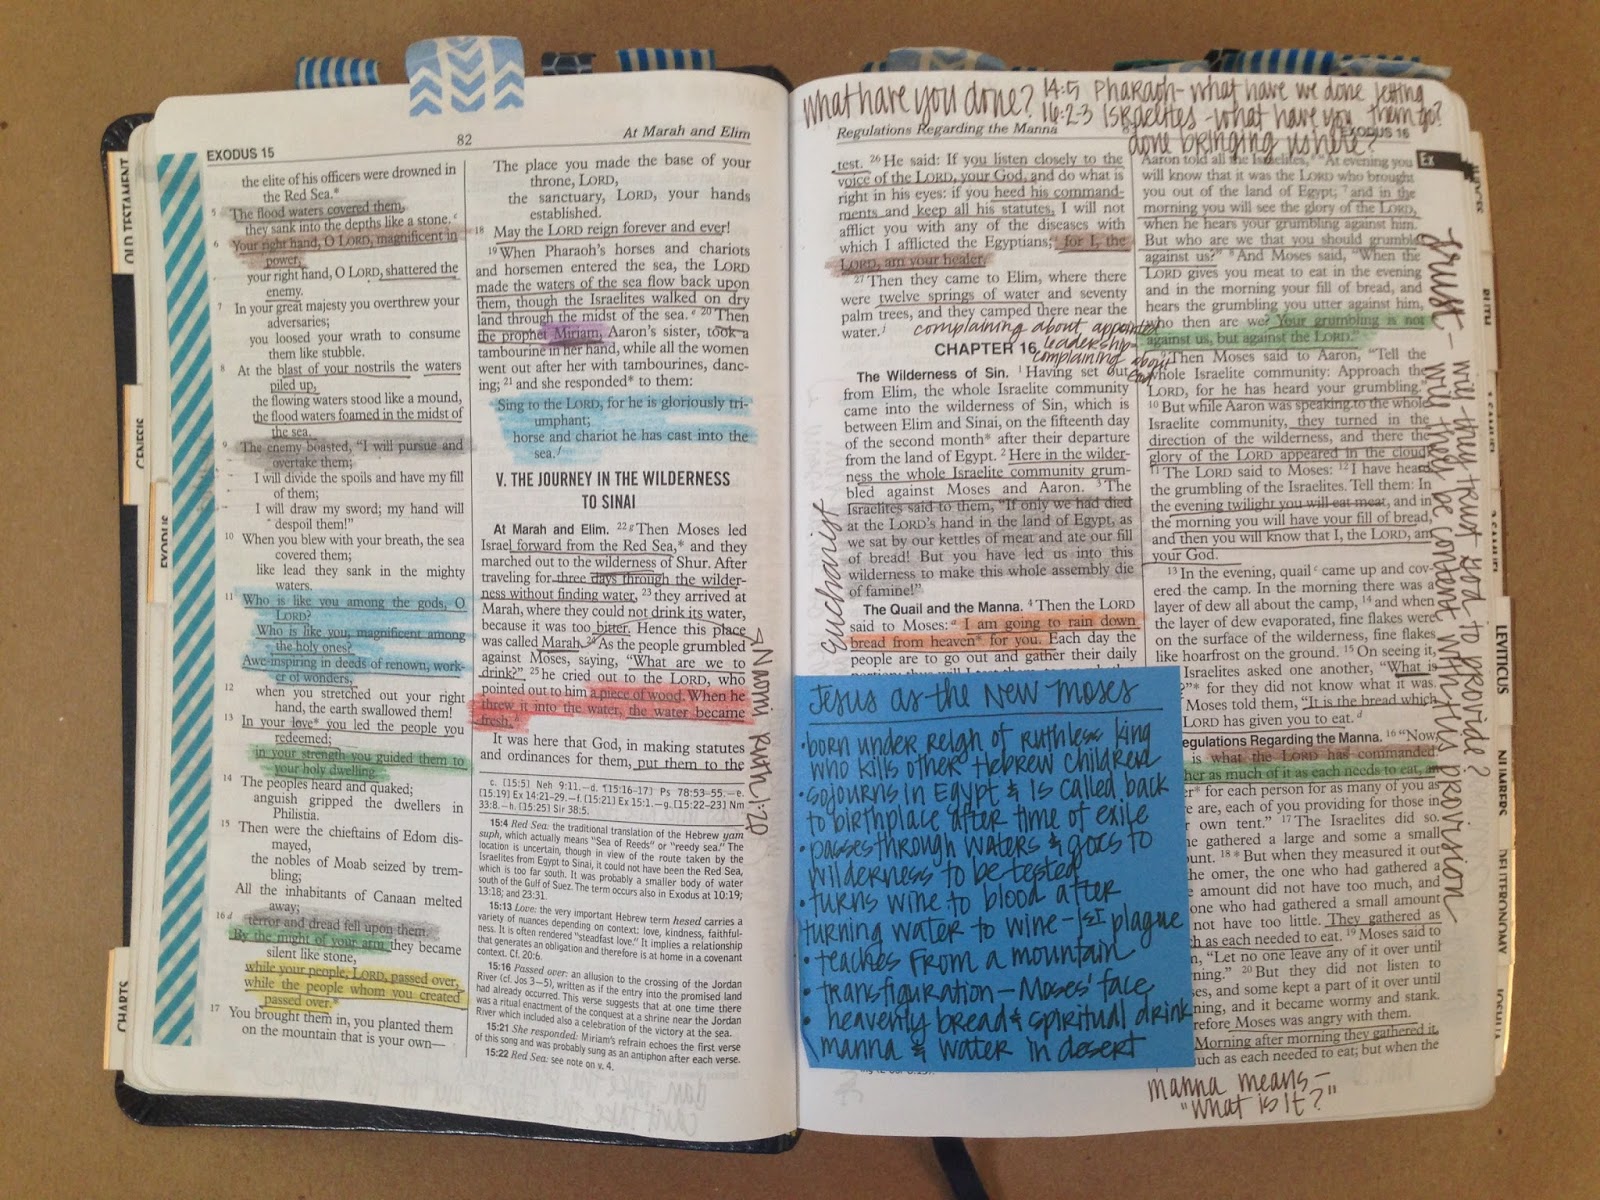 EXODUS 15
82
At Marah and Elim
the elite of his officers were drowned in
the Red Sea.*
5 The flood waters covered them,
they sank into the depths like a stone. c
6 Your right hand, O LORD, magnificent in
power,
your right hand, O LORD, shattered the
enemy.
7 In your great majesty you overthrew your
adversaries;
you loosed your wrath to consume
them like stubble.
8 At the blast of your nostrils the waters
piled up,
the flowing waters stood like a mound,
the flood waters foamed in the midst of
the sea.
9 The enemy boasted, "I will pursue and
overtake them;
I will divide the spoils and have my fill
of them;
I will draw my sword; my hand will
despoil them!"
10 When you blew with your breath, the sea
covered them;
like lead they sank in the mighty
waters.
11 Who is like you among the gods, O
LORD?
Who is like you, magnificent among
the holy ones?
Awe-inspiring in deeds of renown, work-
er of wonders,
12 when you stretched out your right
hand, the earth swallowed them!
13 In your love* you led the people you
redeemed;
in your strength you guided them to
your holy dwelling.
14 The peoples heard and quaked;
anguish gripped the dwellers in
Philistia.
15 Then were the chieftains of Edom dis-
mayed,
the nobles of Moab seized by trem-
bling;
All the inhabitants of Canaan melted
away;
16 d terror and dread fell upon them.
By the might of your arm they became
silent like stone,
while your people, LORD, passed over,
while the people whom you created
passed over.*
17 You brought them in, you planted them
on the mountain that is your own—
The place you made the base of your
throne, LORD,
the sanctuary, LORD, your hands
established.
18 May the LORD reign forever and ever!
19 When Pharaoh's horses and chariots
and horsemen entered the sea, the LORD
made the waters of the sea flow back upon
them, though the Israelites walked on dry
land through the midst of the sea. e 20 Then
the prophet Miriam, Aaron's sister, took a
tambourine in her hand, while all the women
went out after her with tambourines, danc-
ing; 21 and she responded* to them:
Sing to the LORD, for he is gloriously tri-
umphant;
horse and chariot he has cast into the
sea. f
V. THE JOURNEY IN THE WILDERNESS
TO SINAI
At Marah and Elim. 22 g Then Moses led
Israel forward from the Red Sea,* and they
marched out to the wilderness of Shur. After
traveling for three days through the wilder-
ness without finding water, 23 they arrived at
Marah, where they could not drink its water,
because it was too bitter. Hence this place
was called Marah. 24 As the people grumbled
against Moses, saying, "What are we to
drink?" 25 he cried out to the LORD, who
pointed out to him a piece of wood. When he
threw it into the water, the water became
fresh. h
It was here that God, in making statutes
and ordinances for them, put them to the
Naomi Ruth 1:20
c. [15:5] Neh 9:11.—d. [15:16-17] Ps 78:53-55.—e.
[15:19] Ex 14:21-29.—f. [15:21] Ex 15:1.—g. [15:22-23] Nm
33:8.—h. [15:25] Sir 38:5.
15:4 Red Sea: the traditional translation of the Hebrew yam
suph, which actually means "Sea of Reeds" or "reedy sea." The
location is uncertain, though in view of the route taken by the
Israelites from Egypt to Sinai, it could not have been the Red Sea,
which is too far south. It was probably a smaller body of water
south of the Gulf of Suez. The term occurs also in Exodus at 10:19;
13:18; and 23:31.
15:13 Love: the very important Hebrew term hesed carries a
variety of nuances depending on context: love, kindness, faithful-
ness. It is often rendered "steadfast love." It implies a relationship
that generates an obligation and therefore is at home in a covenant
context. Cf. 20:6.
15:16 Passed over: an allusion to the crossing of the Jordan
River (cf. Jos 3—5), written as if the entry into the promised land
had already occurred. This verse suggests that at one time there
was a ritual enactment of the conquest at a shrine near the Jordan
River which included also a celebration of the victory at the sea.
15:21 She responded: Miriam's refrain echoes the first verse
of this song and was probably sung as an antiphon after each verse.
15:22 Red Sea: see note on v. 4.
OLD TESTAMENT
GENESIS
EXODUS
CHARTS
what have you done? 14:5 Pharaoh - what have we done letting
them go?
16:2-3 Israelites - what have you
done bringing us here?
Regulations Regarding the Manna
EXODUS 16
Ex
test. 26 He said: If you listen closely to the
voice of the LORD, your God, and do what is
right in his eyes: if you heed his command-
ments and keep all his statutes, I will not
afflict you with any of the diseases with
which I afflicted the Egyptians; for I, the
LORD, am your healer.
27 Then they came to Elim, where there
were twelve springs of water and seventy
palm trees, and they camped there near the
water. i
complaining about appointed
leadership
complaining about
CHAPTER 16
The Wilderness of Sin. 1 Having set out
from Elim, the whole Israelite community
came into the wilderness of Sin, which is
between Elim and Sinai, on the fifteenth day
of the second month* after their departure
from the land of Egypt. 2 Here in the wilder-
ness the whole Israelite community grum-
bled against Moses and Aaron. 3 The
Israelites said to them, "If only we had died
at the LORD's hand in the land of Egypt, as
we sat by our kettles of meat and ate our fill
of bread! But you have led us into this
wilderness to make this whole assembly die
of famine!"
eucharist
The Quail and the Manna. 4 Then the LORD
said to Moses: a I am going to rain down
bread from heaven* for you. Each day the
people are to go out and gather their daily
Jesus as the New Moses
• born under reign of ruthless king
who kills other Hebrew children
• sojourns in Egypt & is called back
to birthplace after time of exile
• passes through waters & goes to
wilderness to be tested
• turns wine to blood after
turning water to wine - 1st plague
• teaches from a mountain
• transfiguration - Moses' face
• heavenly bread & spiritual drink
manna & water in desert
Aaron told all the Israelites, "At evening you
will know that it was the LORD who brought
you out of the land of Egypt; 7 and in the
morning you will see the glory of the LORD,
when he hears your grumbling against him.
But who are we that you should grumble
against us?" 8 And Moses said, "When the
LORD gives you meat to eat in the evening
and in the morning your fill of bread, and
hears the grumbling you utter against him,
who then are we? Your grumbling is not
against us, but against the LORD."
9 Then Moses said to Aaron, "Tell the
whole Israelite community: Approach the
LORD, for he has heard your grumbling."
10 But while Aaron was speaking to the whole
Israelite community, they turned in the
direction of the wilderness, and there the
glory of the LORD appeared in the cloud!
11 The LORD said to Moses: 12 I have heard
the grumbling of the Israelites. Tell them: In
the evening twilight you will eat meat, and in
the morning you will have your fill of bread,
and then you will know that I, the LORD, am
your God.
13 In the evening, quail c came up and cov-
ered the camp. In the morning there was a
layer of dew all about the camp, 14 and when
the layer of dew evaporated, fine flakes were
on the surface of the wilderness, fine flakes
like hoarfrost on the ground. 15 On seeing it,
Israelites asked one another, "What is
?"* for they did not know what it was.
Moses told them, "It is the bread which
LORD has given you to eat. d
egulations Regarding the Manna. 16 "Now,
is what the LORD has commanded.
her as much of it as each needs to eat, an
er* for each person for as many of you as
e are, each of you providing for those in
own tent." 17 The Israelites did so.
gathered a large and some a small
ount. 18 * But when they measured it out
the omer, the one who had gathered a
amount did not have too much, and
one who had gathered a small amount
not have too little. They gathered as
h as each needed to eat. 19 Moses said to
m, "Let no one leave any of it over until
ning." 20 But they did not listen to
es, and some kept a part of it over until
ning, and it became wormy and stank.
refore Moses was angry with them.
Morning after morning they gathered it,
uch as each needed to eat; but when the
manna means -
"what is it?"
trust - will they trust God to provide?
will they be content with his provision
RUTH
LEVITICUS
NUMBERS
DEUTERONOMY
JOSHUA